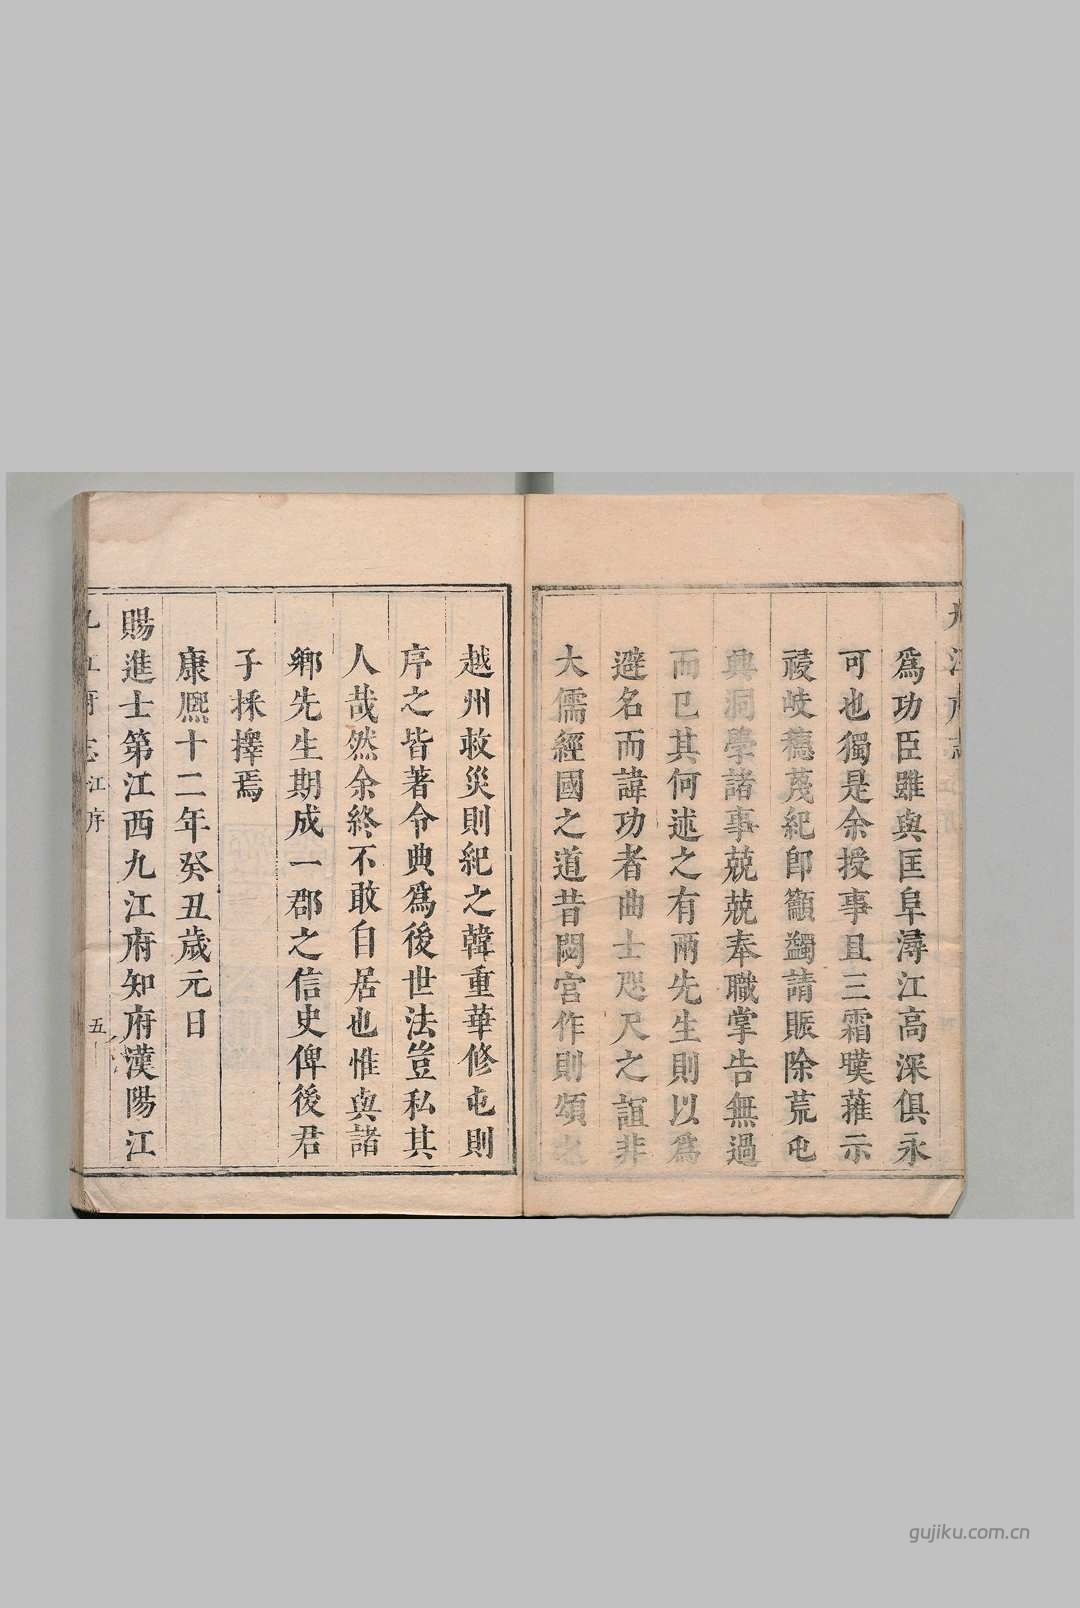 九江府志
爲功臣雖與匡阜潯江高深俱永
可也獨是余授事且三霜嘆蓷示
祲岐穗蔑紀卽籲蠲請賑除荒屯
興洞學諸事兢兢奉職掌告無過
而已其何述之有兩先生則以爲
避名而諱功者曲士咫尺之誼非
大儒經國之道昔閟宮作則頌之
越州救災則紀之韓重華修屯則
序之皆著令典爲後世法豈私其
人哉然余終不敢自居也惟與諸
鄉先生期成一郡之信史俾後君
子採擇焉
康熈十二年癸丑歲元日
賜進士第江西九江府知府漢陽江
九江府志 江序 五
gujiku.com.cn